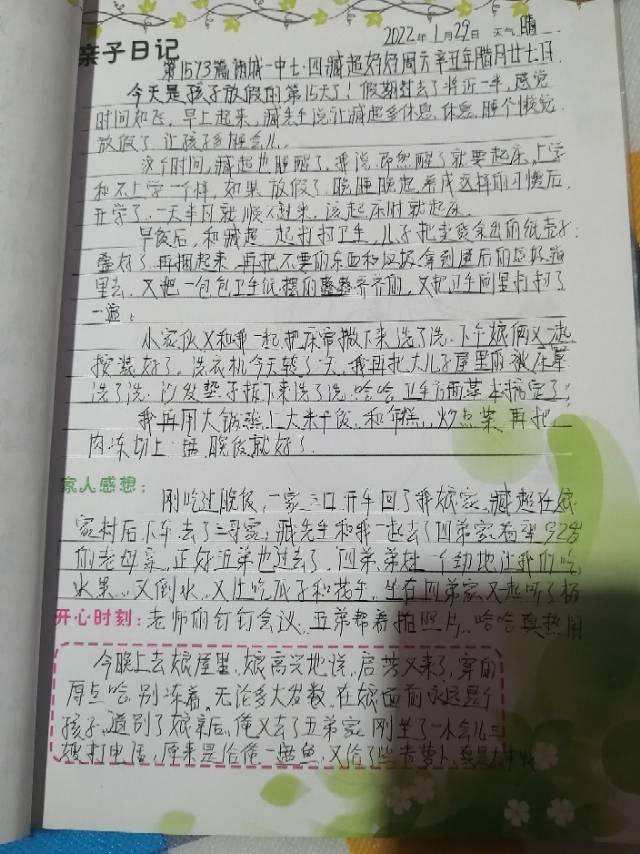 2022年1月29日 天气 晴
亲子日记
第1573篇 一中七·四臧超好好周六辛丑年腊月廿七日
今天是孩子放假的第15天了！假期过去了将近一半，感觉
时间如飞，早上起来，臧先生说让臧超多休息，休息，睡个懒觉
放假了，让孩子多睡会儿。
这个时间，臧超也睡醒了，我说，即然醒了就要起床，上学
和不上学一个样，如果放假了，晚睡晚起，养成这样的习惯后，
开学了，一天半月就顺不过来，该起床时就起床。
早饭后，和臧超一起打扫卫生，儿子把
整好了，再捆起来，再把不要的东西和垃圾拿到屋后的垃圾箱
里去，又把一包包卫生纸摆的整整齐齐的，又把卫生间里打扫了
一遍。
小家伙又和我一起把床帘撤下来洗了洗，下午娘俩又一起
按装好了，洗衣机今天转了一天，我再把大儿子屋里的被床罩
洗了洗，沙发垫子拆下来洗了洗，哈哈，卫生方面基本搞定了！
我再用大锅蒸上大米干饭，和年糕，炒点菜，再把
肉冻切上一播，晚饭就好了。
家人感想：
刚吃过晚饭，一家三口开车回了我娘家，臧超在娘
家村后下车，去了二哥家，臧先生和我一起去了四弟家看望92岁
的老母亲，正好五弟也过去了，四弟，弟妹一个劲地让我们吃
水果，又倒水，又让吃瓜子和花生，坐在四弟家又一起听了杨
开心时刻：老师的钉钉会议，五弟帮着拍照片，哈哈真热闹
今晚上去娘屋里，娘高兴地说，启芳又来了，穿的
厚点哈，别冻着，无论多大岁数，在娘面前永远是个
孩子，道别了娘亲后，俺又去了五弟家，刚坐了一小会儿三
嫂打电话，原来是给俺一些鱼，又给了些卡萝卜，